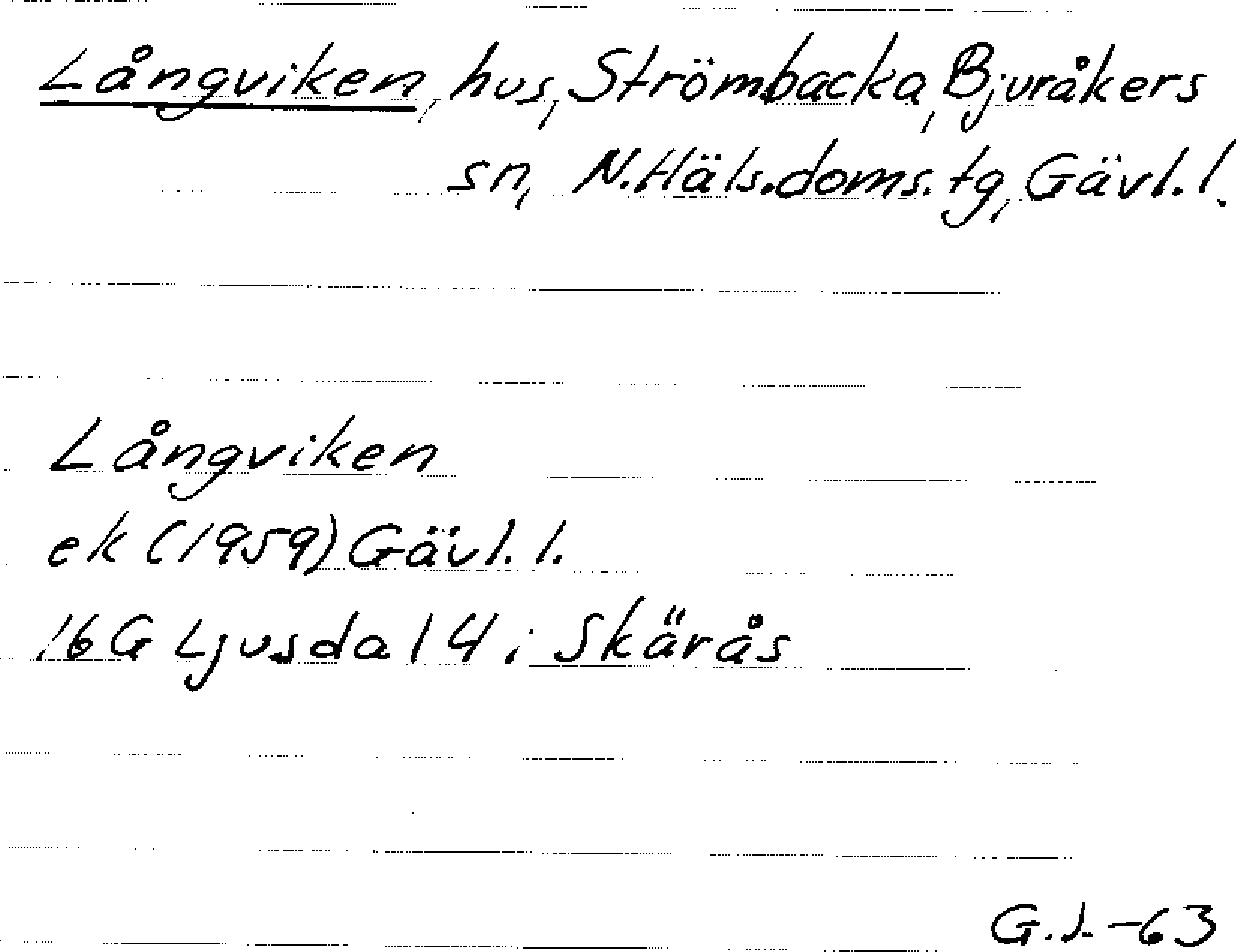 Långviken, hus, Strömbacka, Bjuråkers
sn, N.Häls.doms.tg, Gävl.l.
Långviken
ek (1959) Gävl.l.
16G Ljusdal 4 i Skärås
G.J.-63